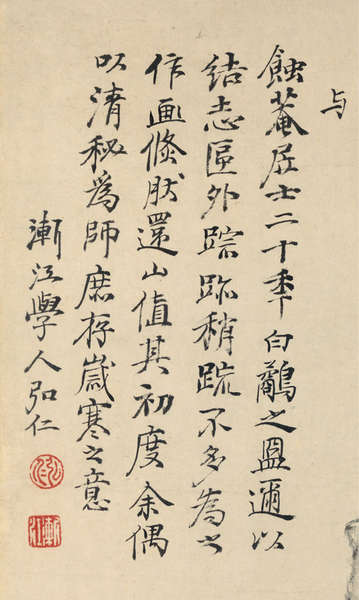 与
蝕菴居士二十季白鷗之盟邇以
結志區外踪跡稍疏不多為之
作画倏肰還山值其初度余偶
以清秘為師庶存歲寒之意
漸江學人弘仁
弘仁
漸江